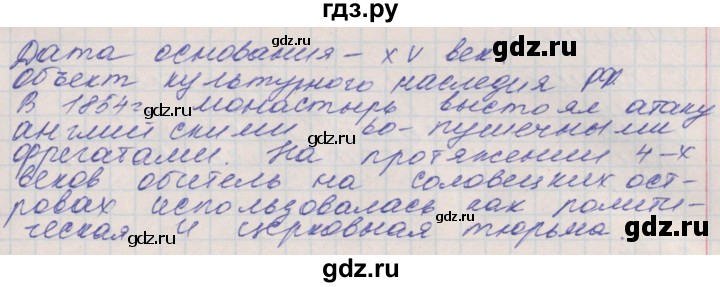 гдз.ру
Дата основания – XV век
объект культурного наследия РФ.
В 1854г монастырь выстоял атаку
английскими 60-пушечными
фрегатами. На протяжении 4-х
веков обитель на соловецких ост-
ровах использовалась как полити-
ческая и церковная тюрьма.
gdz.ru
gdz.ru
gdz.ru
gdz.ru
gdz.ru
gdz.ru
gdz.ru
gdz.ru
gdz.ru
gdz.ru